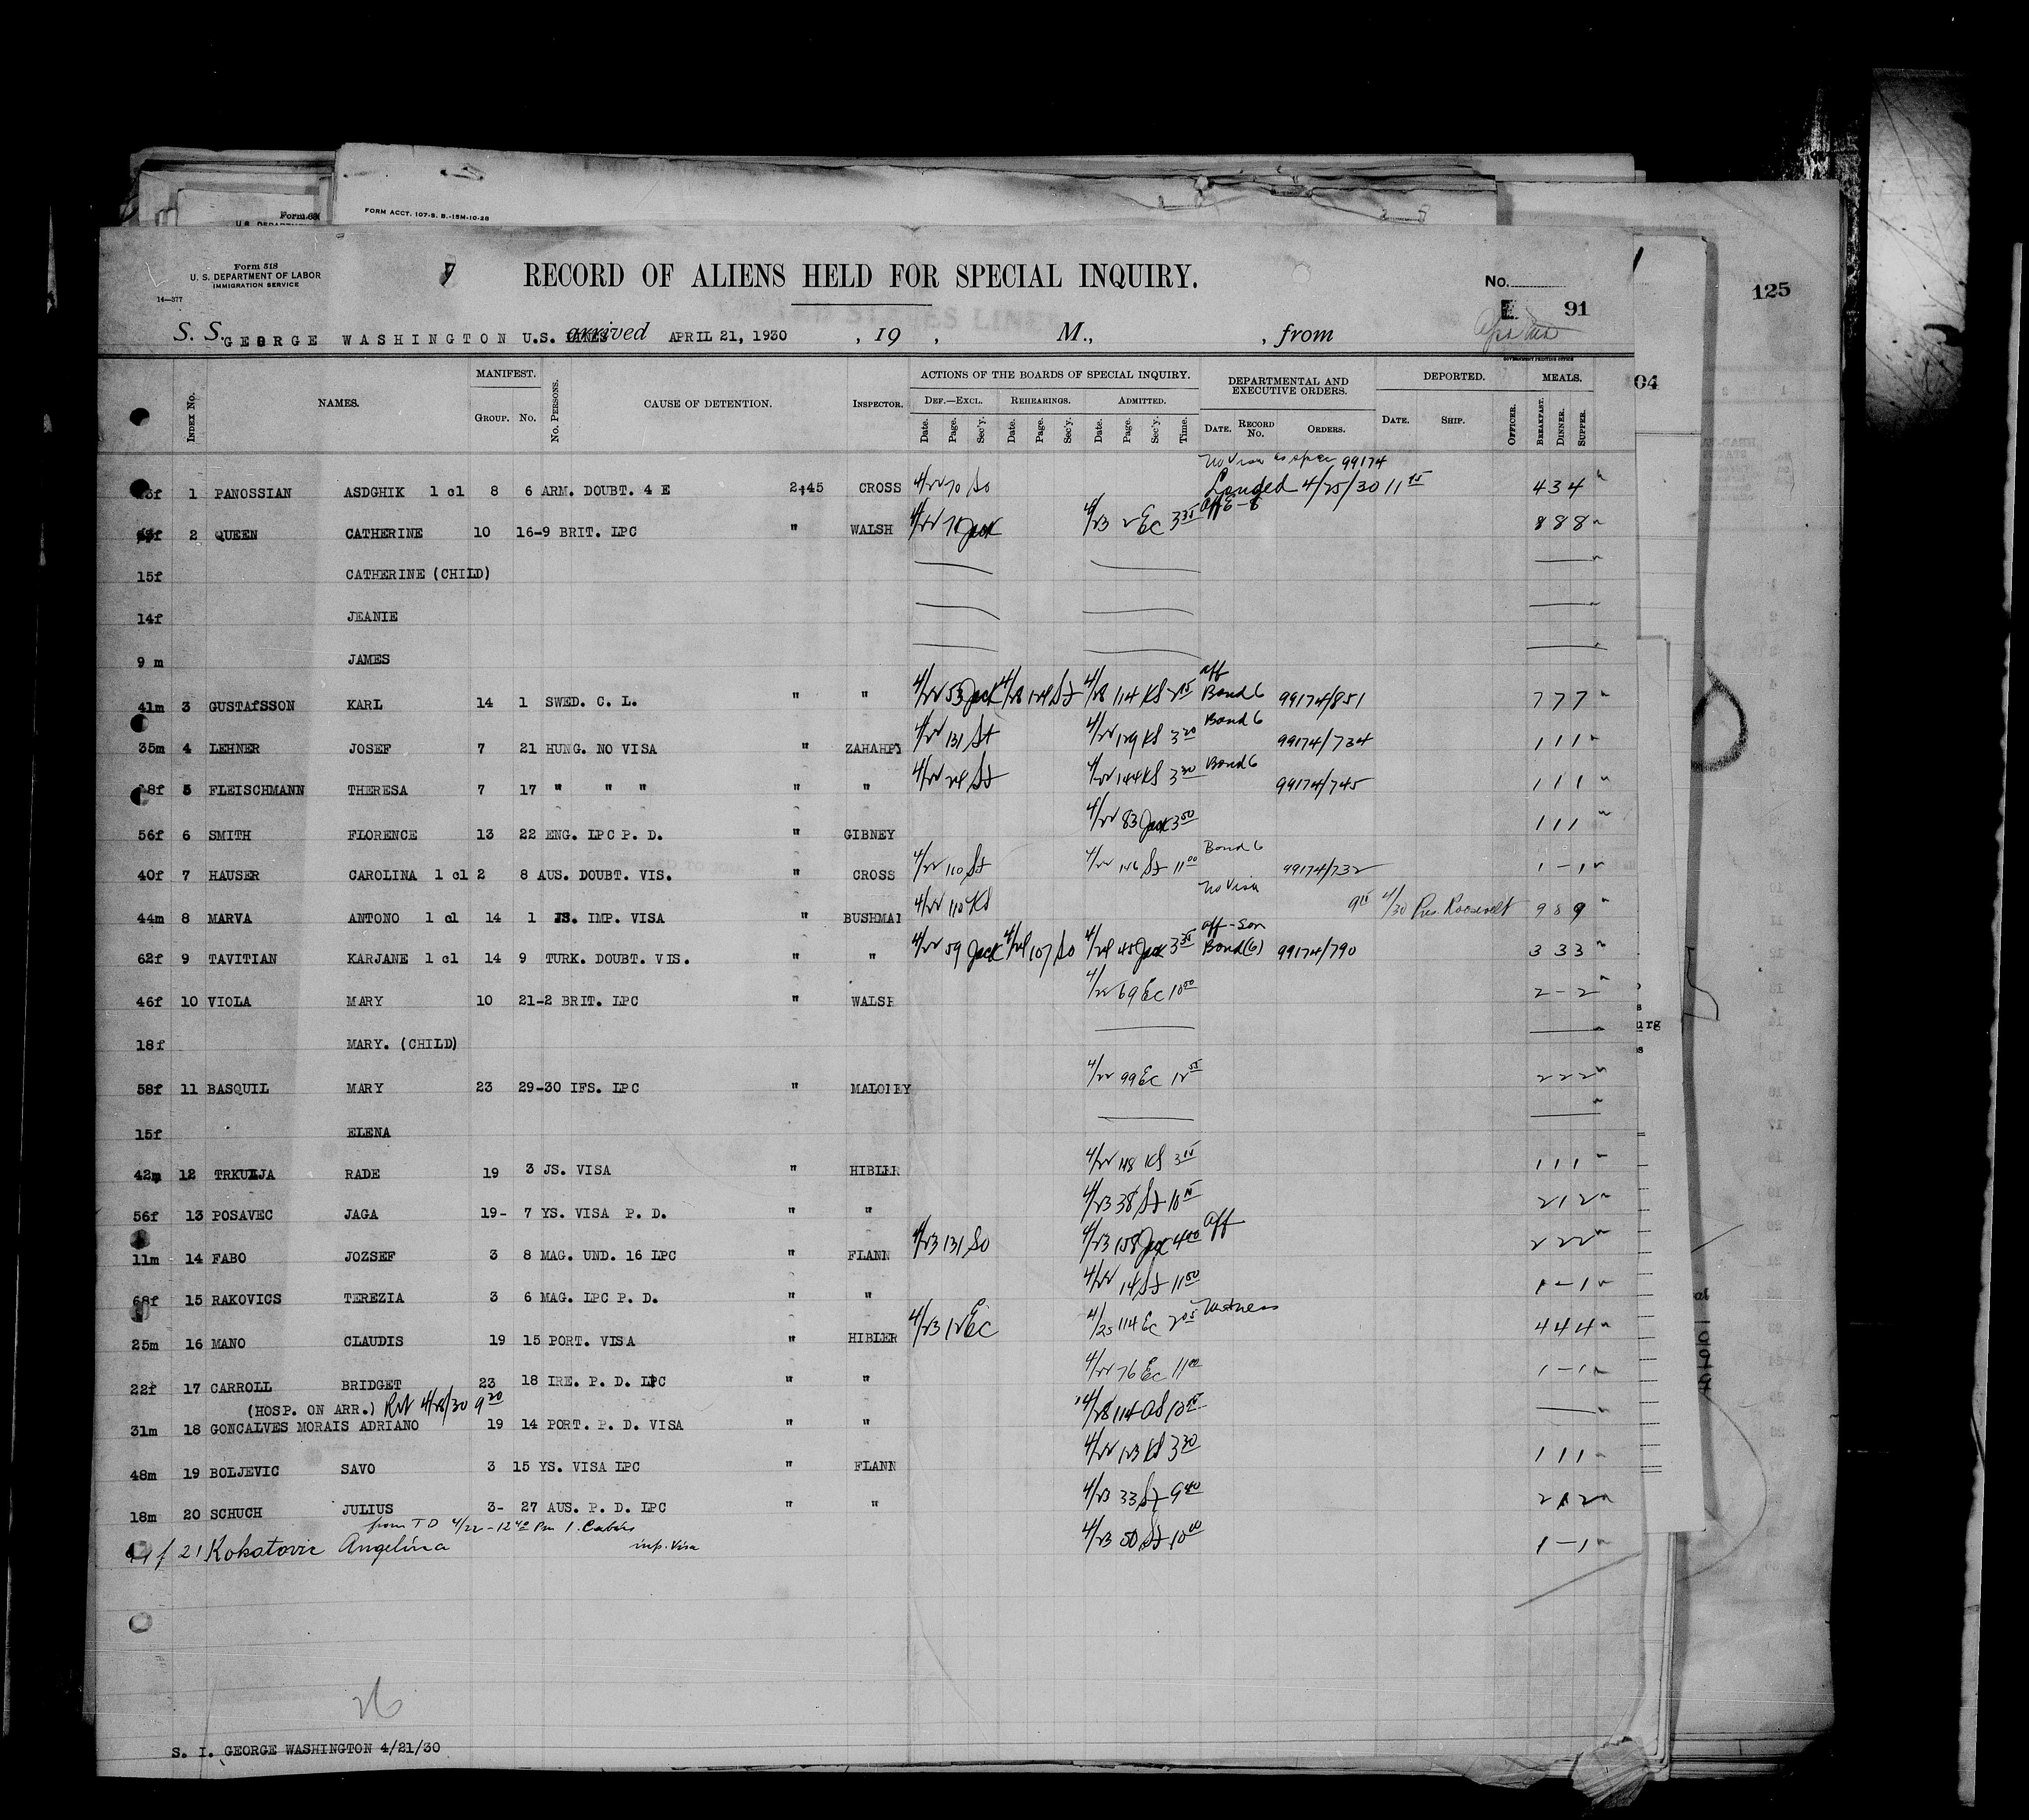 Form 518
U. S. DEPARTMENT OF LABOR
IMMIGRATION SERVICE
14—377
FORM ACCT. 107-S. B.-15M-10-28
RECORD OF ALIENS HELD FOR SPECIAL INQUIRY.
No.
91
125
S. S. GEORGE WASHINGTON U.S. LINES arrived APRIL 21, 1930 , 19 , M., , from
GOVERNMENT PRINTING OFFICE
04
INDEX No. NAMES. MANIFEST. GROUP. No. No. PERSONS. CAUSE OF DETENTION. INSPECTOR. ACTIONS OF THE BOARDS OF SPECIAL INQUIRY. DEF.—EXCL. REHEARINGS. ADMITTED. DEPARTMENTAL AND EXECUTIVE ORDERS. DEPORTED. MEALS.
Date. Page. Sec'y. Date. Page. Sec'y. Date. Page. Sec'y. Time. DATE. RECORD No. ORDERS. DATE. SHIP. OFFICER. BREAKFAST. DINNER. SUPPER.
99174
1 PANOSSIAN ASDGHIK 1 cl 8 6 ARM. DOUBT. 4 E 2:45 CROSS 4/22 70 So Landed 4/25/30 11 45 4 3 4
2 QUEEN CATHERINE 10 16-9 BRIT. LPC " WALSH 4/22 71 Jack 4/23 2 EC 3 35 8 8 8
15f CATHERINE (CHILD)
14f JEANIE
9 m JAMES
aff
41m 3 GUSTAfSSON KARL 14 1 SWED. C. L. " " 4/22 53 Jack 4/28 124 St 4/28 114 KS Bond 6 99174/851 7 7 7
Bond 6
35m 4 LEHNER JOSEF 7 21 HUNG. NO VISA " 4/22 131 St 4/22 129 KS 3 20 99174/734 1 1 1
Bond 6
5 FLEISCHMANN THERESA 7 17 " " " " " 4/22 24 St 4/22 144 KS 3 30 99174/745 1 1 1
56f 6 SMITH FLORENCE 13 22 ENG. LPC P. D. " GIBNEY 4/22 83 Jack 3 50 1 1 1
Bond 6
40f 7 HAUSER CAROLINA 1 cl 2 8 AUS. DOUBT. VIS. " CROSS 4/22 110 St 4/22 146 St 11 00 99174/732 1 - 1
No Visa
44m 8 MARVA ANTONO 1 cl 14 1 JS. IMP. VISA " 4/22 110 KS 4/30 Pres. Roosevelt 9 8 9
aff - Son
62f 9 TAVITIAN KARJANE 1 cl 14 9 TURK. DOUBT. VIS. " " 4/22 59 Jack 4/24 107 So 4/24 45 Jack 3 35 Bond (6) 99174/790 3 3 3
46f 10 VIOLA MARY 10 21-2 BRIT. LPC " WALSH 4/22 69 EC 10 50 2 - 2
18f MARY. (CHILD)
58f 11 BASQUIL MARY 23 29-30 IFS. LPC " 4/22 99 EC 12 55 2 2 2
15f ELENA
42m 12 TRKULJA RADE 19 3 JS. VISA " HIBLER 4/22 118 KS 3 15 1 1 1
56f 13 POSAVEC JAGA 19- 7 YS. VISA P. D. " " 4/23 38 St 10 15 2 1 2
11m 14 FABO JOZSEF 3 8 MAG. UND. 16 LPC " FLANN 4/23 131 So 4/23 158 Jack 4 00 aff 2 2 2
68f 15 RAKOVICS TEREZIA 3 6 MAG. LPC P. D. " " 4/22 14 St 11 50 1 - 1
25m 16 MANO CLAUDIS 19 15 PORT. VISA " HIBLER 4/23 12 EC 4/25 114 EC 2 05 Witness 4 4 4
22f 17 CARROLL BRIDGET 23 18 IRE. P. D. LPC " " 4/22 76 EC 11 00 1 - 1
(HOSP. ON ARR.) 4/28/30 9 20
31m 18 GONCALVES MORAIS ADRIANO 19 14 PORT. P. D. VISA " " 4/28 114
48m 19 BOLJEVIC SAVO 3 15 YS. VISA LPC " FLANN 4/22 123 KS 3 30 1 1 1
18m 20 SCHUCH JULIUS 3- 27 AUS. P. D. LPC " " 4/23 33 St 9 40 2 1 2
from T D 4/22 - 12 40 Pm 1. Cabin
f 21 Kokotovic Angelina imp. Visa 4/23 50 St 10 00 1 - 1
26
S. I. GEORGE WASHINGTON 4/21/30